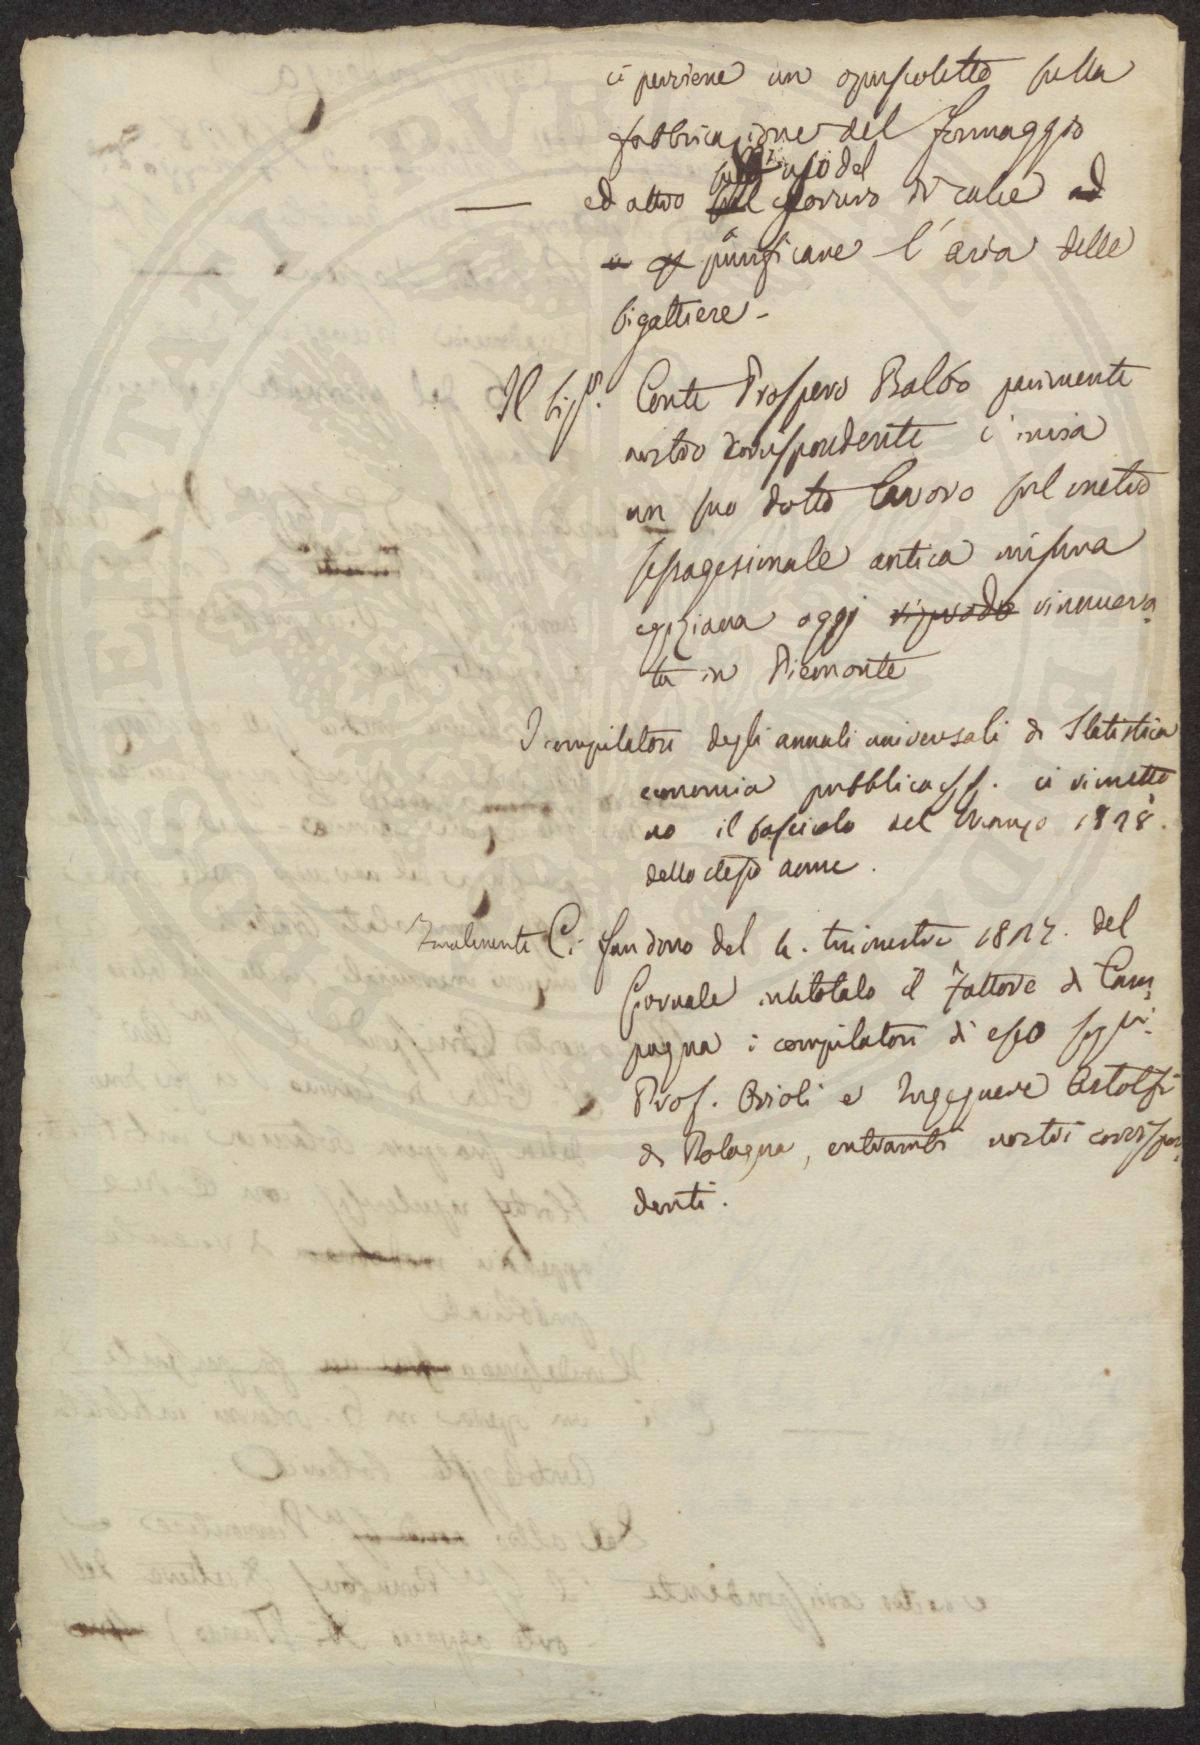 ci perviene un opuscoletto sulla
fabbricazione del formaggio
uso del
ed altro sul cloruro di calce ad
a purificare l'aria delle
bigattiere -
Il Sigr. Conte Prospero Balbo parimente
nostro corrispondente c'invia
un suo dotto lavoro sul metro
sessagesimale antica misura
egiziana oggi rinnuova-
ta in Piemonte
I compilatori degli annuali universali di Statistica
economia pubblica ci rimetto
no il fascicolo del Marzo 1828.
dello stesso anno.
Finalmente Ci fan dono del 4. trimestre 1827. del
Giornale intitolato il Fattore di Cam-
pagna i compilatori di esso
Prof. Orioli e Ingegnere Astolfi
di Bologna, entrambi nostri corrispon-
denti.